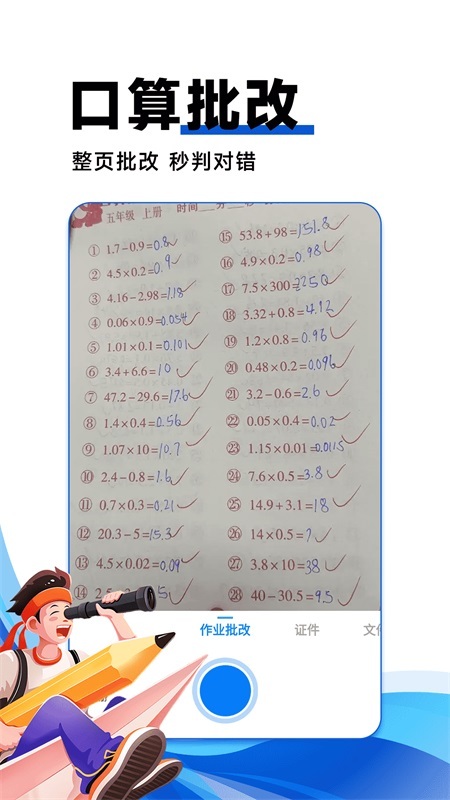 口算批改
整页批改 秒判对错
五年级 上册 时间
① 1.7-0.9=0.8
② 4.5×0.2=0.9
③ 4.16-2.98=1.18
④ 0.06×0.9=0.054
⑤ 1.01×0.1=0.101
⑥ 3.4+6.6=10
⑦ 47.2-29.6=17.6
⑧ 1.4×0.4=0.56
⑨ 1.07×10=10.7
⑩ 2.4-0.8=1.6
⑪ 0.7×0.3=0.21
⑫ 20.3-5=15.3
⑬ 4.5×0.02=0.09
⑭
⑮ 53.8+98=151.8
⑯ 4.9×0.2=0.98
⑰ 7.5×300=2250
⑱ 3.32+0.8=4.12
⑲ 1.2×0.8=0.96
⑳ 0.48×0.2=0.096
㉑ 3.2-0.6=2.6
㉒ 0.05×0.4=0.02
㉓ 1.15×0.01=0.0115
㉔ 7.6×0.5=3.8
㉕ 14.9+3.1=18
㉖ 14×0.5=7
㉗ 3.8×10=38
㉘ 40-30.5=9.5
作业批改 证件